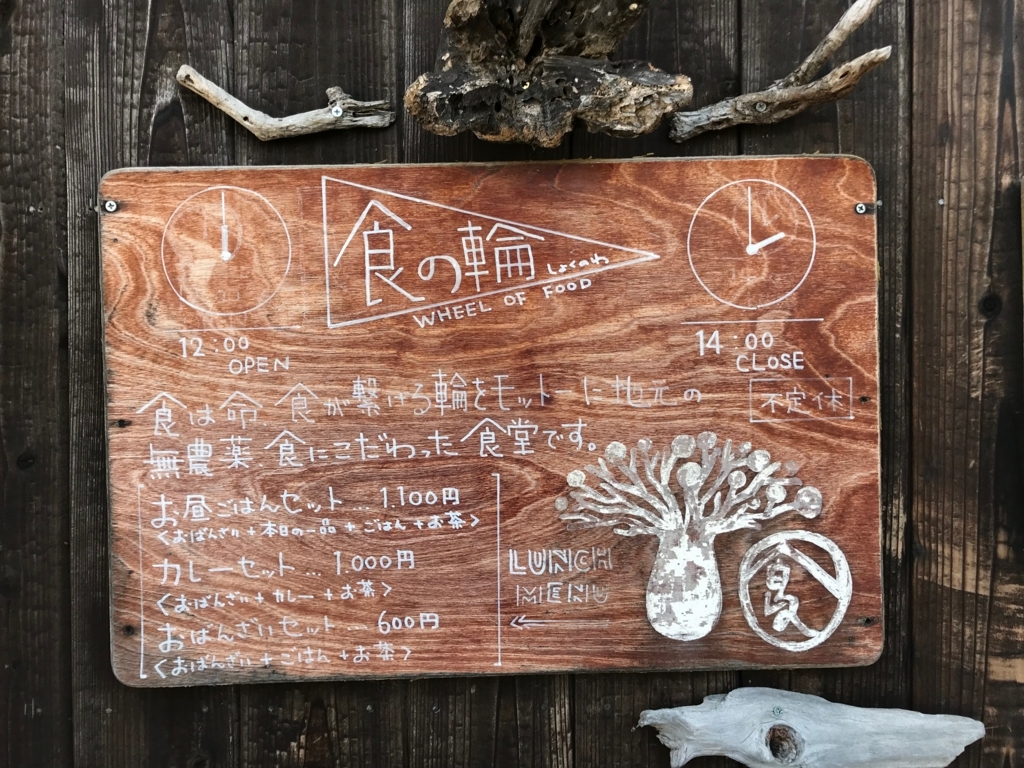 食の輪
しょくのわ
WHEEL OF FOOD
12:00
OPEN
14:00
CLOSE
食は命、食が繋げる輪をモットーに地元の
不定休
無農薬、食にこだわった食堂です。
お昼ごはんセット … 1.100円
<おばんざい+本日の一品+ごはん+お茶>
カレーセット … 1.000円
<おばんざい+カレー+お茶>
おばんざいセット … 600円
<おばんざい+ごはん+お茶>
LUNCH
MENU
食